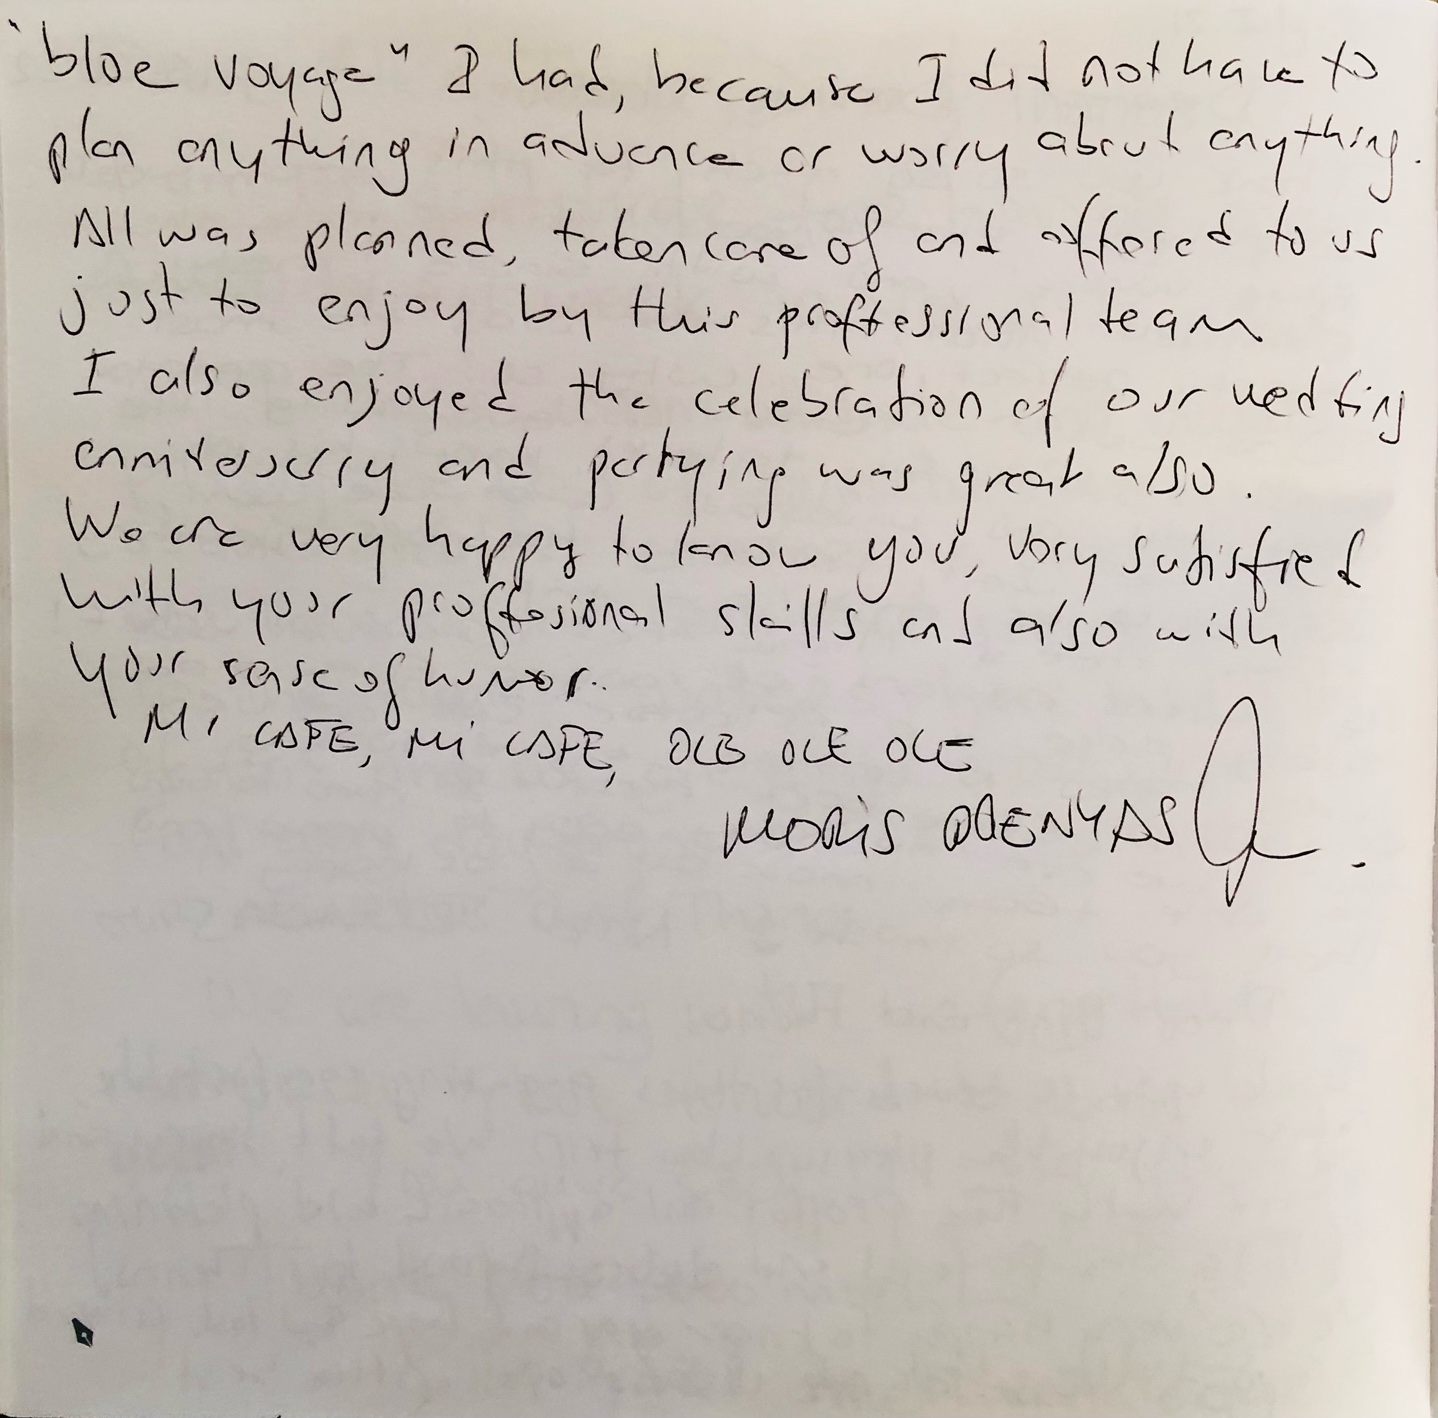 "bloe voyage" I had, because I did not have to
plan anything in advance or worry about anything.
All was planned, taken care of and offered to us
just to enjoy by this proffessional team
I also enjoyed the celebration of our wedding
anniversarry and partying was great also.
We are very happy to know you, very satisfied
with your proffesional skills and also with
your sense of humor..
Mi CAFE, Mi CAFE, OLE OLE OLE
MORIS